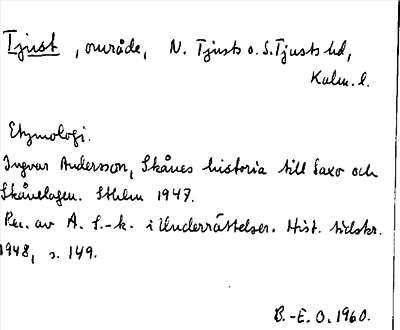 Tjust, område, N. Tjusts o. S. Tjusts hd,
Kalm. l.
Etymologi.
Ingvar Andersson, Skånes historia till Saxo och
Skånelagen. Sthlm 1947.
Rec. av A. S.-k. i Underrättelser. Hist. tidskr.
1948, s. 149.
B.-E. O. 1960.